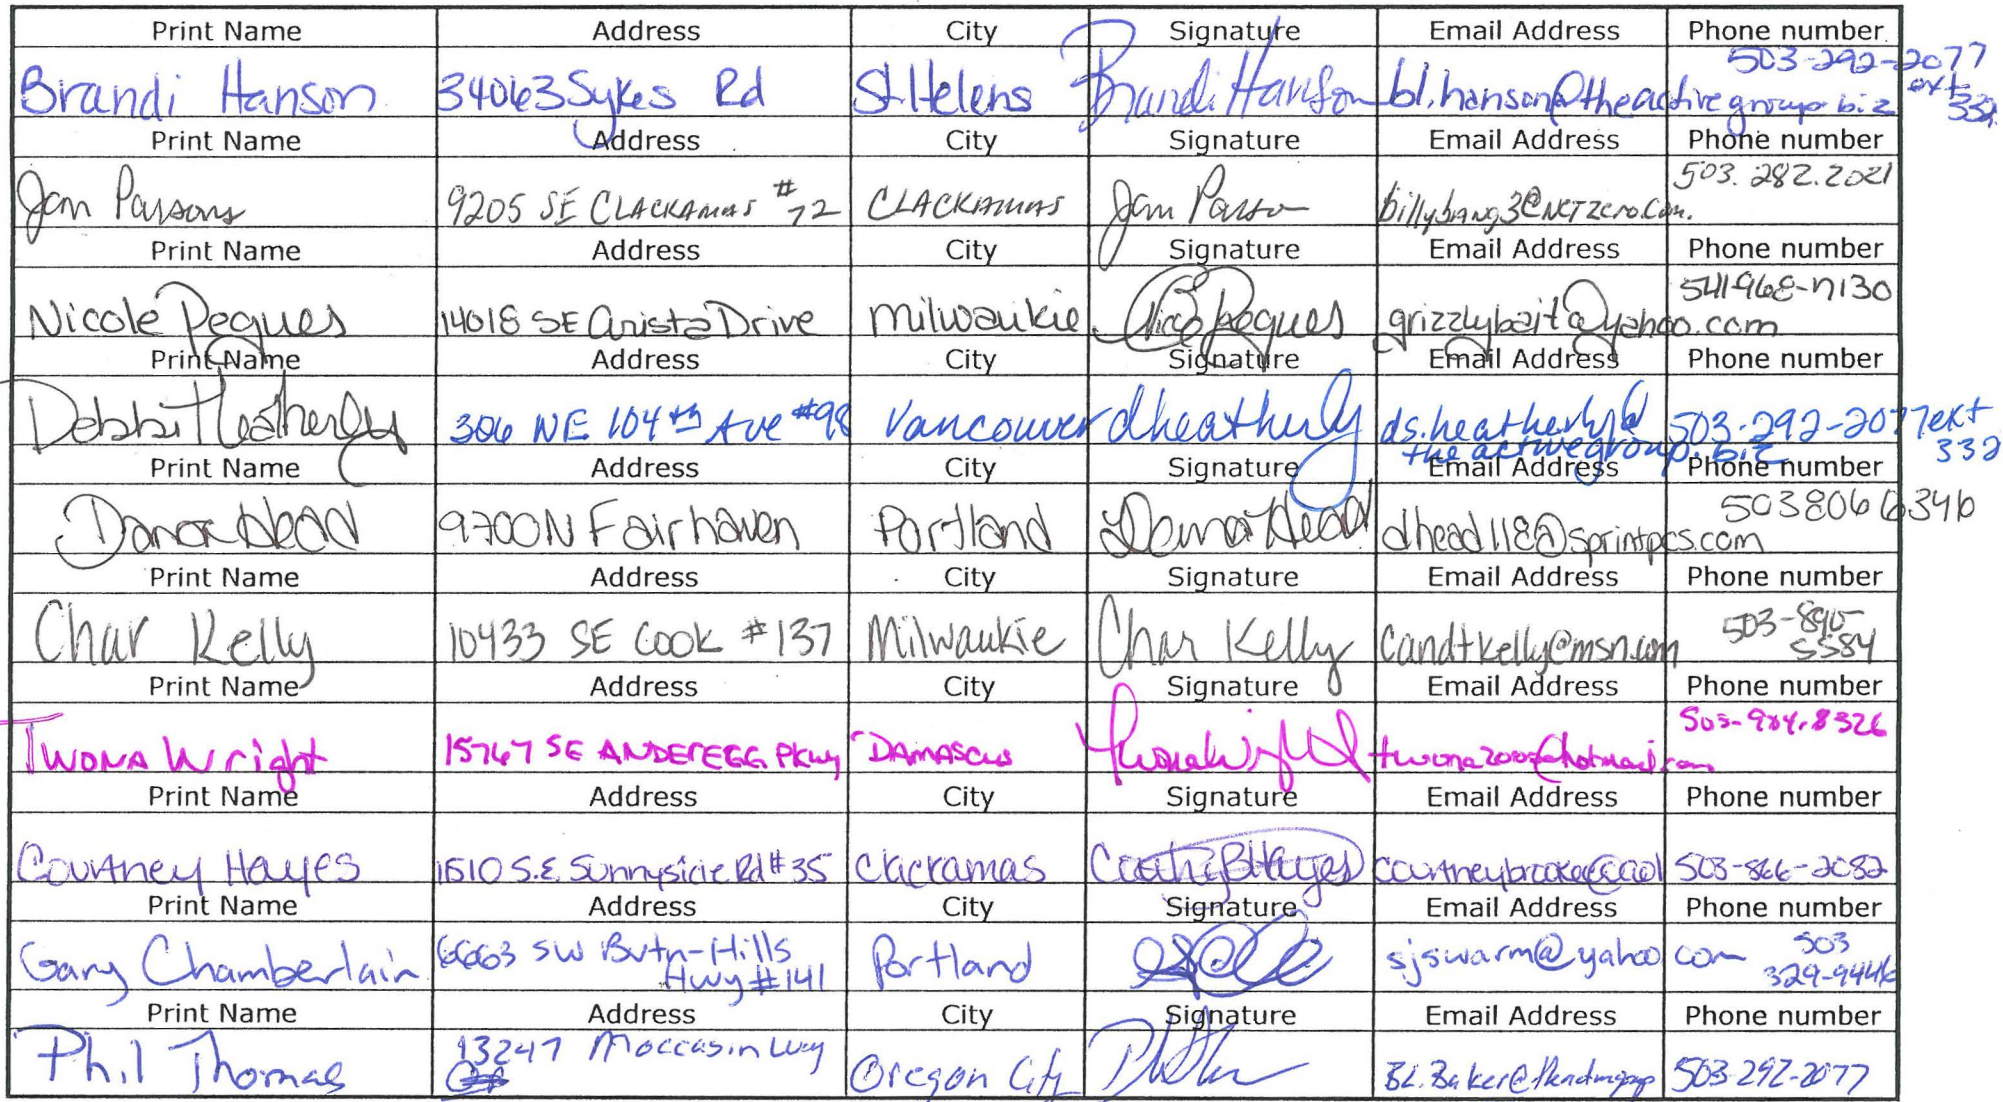 Print Name Address City Signature Email Address Phone number
503-292-2077
Brandi Hanson 34063 Sykes Rd St. Helens Brandi Hanson bl.hanson@theactivegroup.biz ext 332
Print Name Address City Signature Email Address Phone number
503.282.2021
Jan Parsons 9205 SE CLACKAMAS # 72 CLACKAMAS Jan Parson billybang3@NETzero.com.
Print Name Address City Signature Email Address Phone number
541 968-7130
Nicole Pegues 14018 SE Arista Drive Milwaukie Pegues grizzlybait@yahoo.com
Print Name Address City Signature Email Address Phone number
Debbi Heatherly 306 NE 104th Ave #98 Vancouver dheatherly ds.heatherly@ 503-292-2077 ext
theactivegroup.biz 332
Print Name Address City Signature Email Address Phone number
503 806 6346
Dana Head 9700 N Fairhaven Portland Dana Head dhead118@sprintpcs.com
Print Name Address City Signature Email Address Phone number
Char Kelly 10433 SE Cook #137 Milwaukie Char Kelly Candtkelly@msn.com 503-890-
5584
Print Name Address City Signature Email Address Phone number
Twona Wright 15767 SE ANDEREGG PKwy DAMASCUS
Print Name Address City Signature Email Address Phone number
Courtney Hayes 1510 S.E. Sunnyside Rd #35 Clackamas Hayes 503-866-2082
Print Name Address City Signature Email Address Phone number
Gary Chamberlain 6663 SW Bvtn-Hills Portland sjswarm@yahoo com 503
Hwy #141 329-9446
Print Name Address City Signature Email Address Phone number
13247 Moccasin Way
Phil Thomas Oregon City 503-292-2077